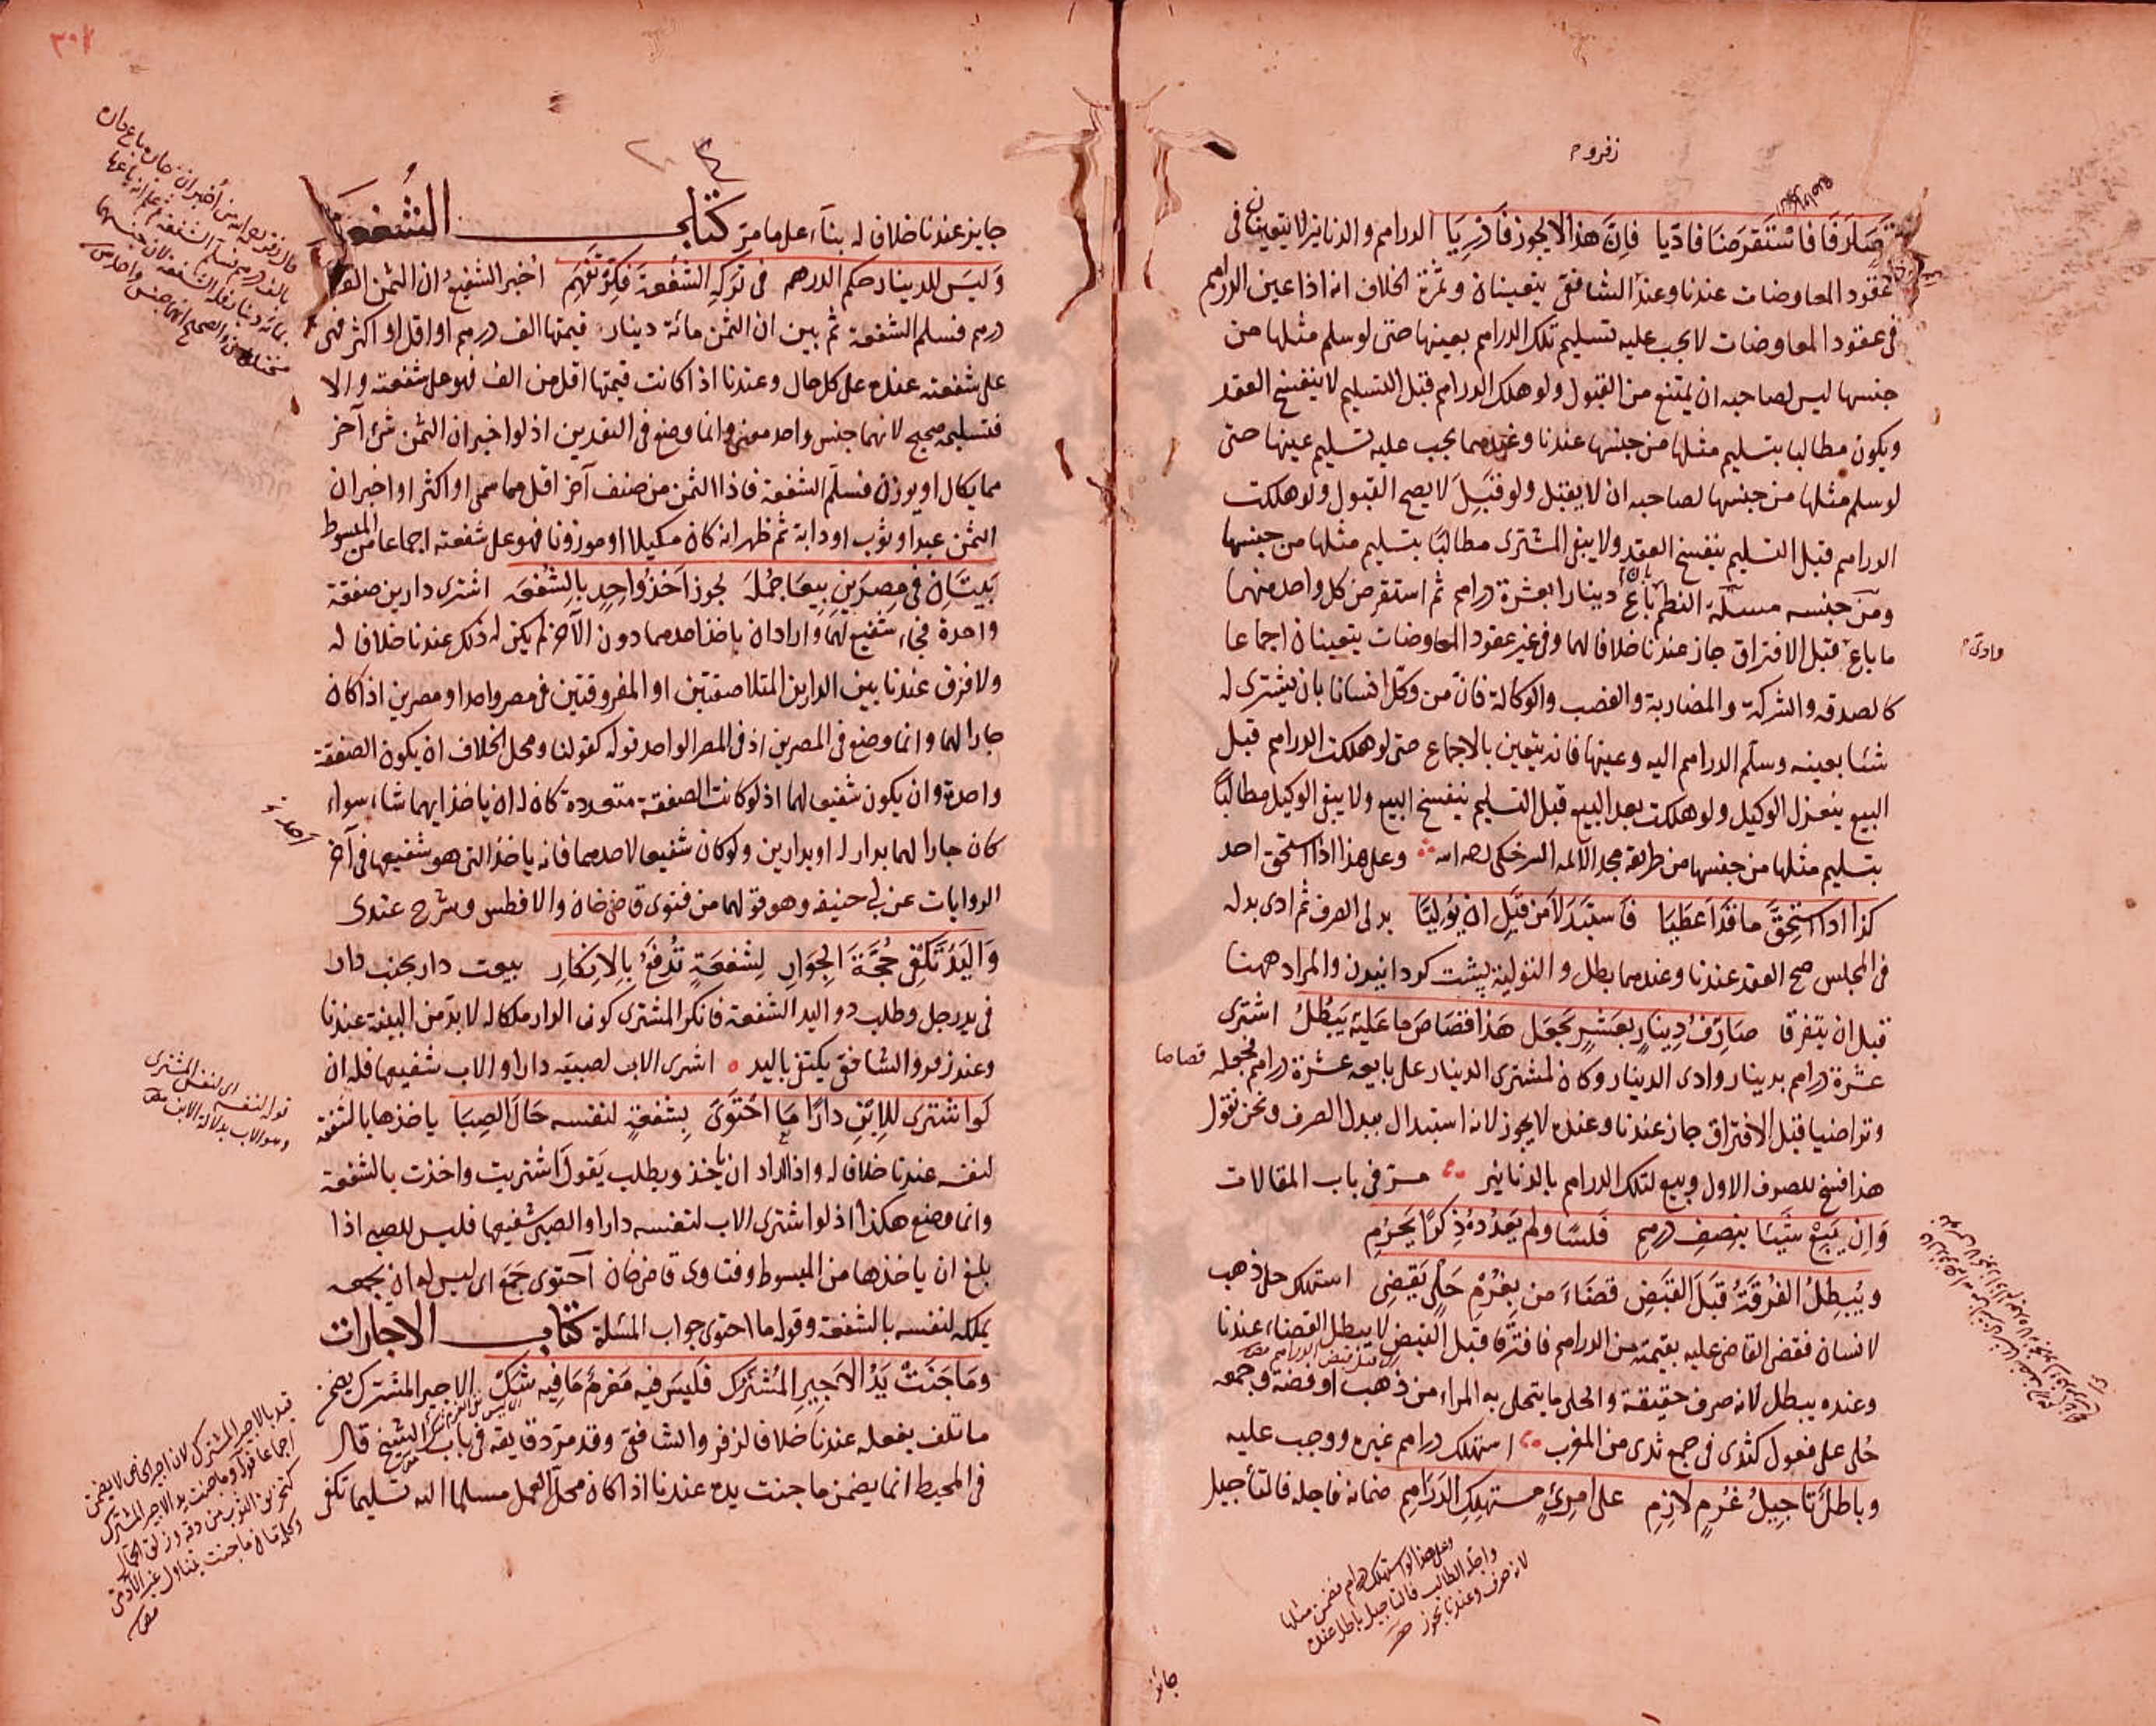 زفر وح
تصارفا فاستقرضنا فاديا فإن هذا لا يجوز فادريا الدراهم والدنانير لا يتعينان في
عقود المعاوضات عندنا وعند الشافعي يتعينان وثمرة الخلاف انه اذا عين الدراهم
في عقود المعاوضات لا يجب عليه تسليم تلك الدراهم بعينها حتى لو سلم مثلها من
جنسها ليس لصاحبه ان يمتنع من القبول ولو هلك الدراهم قبل التسليم لا ينفسخ العقد
ويكون مطالبا بتسليم مثلها من جنسها عندنا وعندهما يجب عليه تسليم عينها حتى
لو سلم مثلها من جنسها لصاحبه ان لا يقبل ولو قبل لا يصح القبول ولو هلكت
الدراهم قبل التسليم ينفسخ العقد ولا يبقى المشترى مطالبا بتسليم مثلها من جنسها
ومن جنسه مسئلة النظم باع دينارا بعشرة دراهم ثم استقرض كل واحد منهما
ما باع قبل الافتراق جاز عندنا خلافا لهما وفي غير عقود المعاوضات يتعينان اجماعا
وادى
كالصدقة والشركة والمضاربة والغصب والوكالة فان من وكل انسانا بان يشترى له
شئا بعينه وسلم الدراهم اليه وعينها فانه يتعين بالاجماع حتى لو هلكت الدراهم قبل
البيع ينعزل الوكيل ولو هلكت بعد البيع قبل التسليم ينفسخ البيع ولا يبقى الوكيل مطالبا
بتسليم مثلها من جنسها من طريقة مجد الائمة السرخكى رحمه الله وعلى هذا اذا استحق احد
كذا اذا استحق ما قد اعطيا فاستبدلا من قبل ان يوليا بدلى الصرف ثم ادى بدله
في المجلس صح العقد عندنا وعندهما بطل والتولية پشت كردانيدن والمراد ههنا
قبل ان يتفرقا صارف دينار بعشر يجعل هذا قصاص ما عليه يبطل اشترى
عشرة دراهم بدينار وادى الدينار وكان لمشترى الدينار على بايعه عشرة دراهم فجعله قصاصا
وتراضيا قبل الافتراق جاز عندنا وعنده لا يجوز لانه استبدال ببدل الصرف ونحن نقول
هذا فسخ للصرف الاول وبيع لتلك الدراهم بالدنانير مر في باب المقالات
وان يبع شيئا بنصف درهم فلسا ولم يعدده ذكرا يحرم
ويبطل الفرقة قبل القبض قضاء من بغرم حلي يقضى استهلك حلى ذهب
لانسان فقضى القاضى عليه بقيمته من الدراهم فافترقا قبل القبض لا يبطل القضاء عندنا
وعنده يبطل لانه صرف حقيقة والحلى ما يتحلى به المراة من ذهب او فضة وجمعه
حلى على فعول كثدى في جمع ثدى من المغرب استهلك دراهم غيره ووجب عليه
وباطل تاجيل غرم لازم على امرئ مستهلك الدراهم ضمانه فاجله فالتأجيل
وعلى هذا لو استهلك دراهم فضمن مثلها
واجله الطالب فالتاجيل باطل عنده
لانه صرف وعندنا يجوز
جائز
٣٠٢
جايز عندنا خلافا له بناء على ما مر كتاب الشفعة
وليس للدينار حكم الدرهم في تركه الشفعة فكر تفهم اخبر الشفيع ان الثمن الف
درهم فسلم الشفعة ثم بين ان الثمن مائة دينار قيمتها الف درهم او اقل او اكثر فهو
على شفعته عنده على كل حال وعندنا اذا كانت قيمتها اقل من الف فهو على شفعته والا
فتسليمه صحيح لانهما جنس واحد معنى وانما وضع في النقدين اذ لو اخبر ان الثمن شئ آخر
مما يكال او يوزن فسلم الشفعة فاذا الثمن من صنف آخر اقل مما سمى او اكثر او اخبر ان
الثمن عبد او ثوب او دابة ثم ظهر انه كان مكيلا او موزونا فهو على شفعته اجماعا من المبسوط
بيتان في مصرين بيعا جملة يجوز اخذ واحد بالشفعة اشترى دارين صفقة
واحدة فجاء شفيع لهما واراد ان ياخذ احدهما دون الآخر لم يكن له ذلك عندنا خلافا له
ولا فرق عندنا بين الدارين المتلاصقتين او المفروقتين في مصر واحد او مصرين اذا كان
جارا لهما وانما وضع في المصرين اذ في المصر الواحد قوله كقولنا ومحل الخلاف ان يكون الصفقة
واحدة وان يكون شفيعا لهما اذ لو كانت الصفقة متعددة كان له ان ياخذ ايهما شاء سواء
كان جارا لهما بدار له او بدارين ولو كان شفيعا لاحدهما فانه ياخذ التى هو شفيعها في آخر
الروايات عن ابى حنيفة وهو قولهما من فتوى قاضى خان والافطس وشرح عندى
واليد تكفى حجة الجوار لشفعة تدفع بالانكار بيعت دار بجنب دار
في يد رجل وطلب ذو اليد الشفعة فانكر المشترى كون الدار ملكا له لا بد من البينة عندنا
وعند زفر والشافعي يكتفى باليد اشترى الاب لصبيه دارا والاب شفيعها فله ان
لو اشترى للابن دارا ما احتوى بشفعة لنفسه حال الصبا ياخذها بالشفعة
لنفسه عندنا خلافا له واذا اراد ان ياخذ ويطلب يقول اشتريت واخذت بالشفعة
وانما وضع هكذا اذ لو اشترى الاب لنفسه دارا والصبى شفيعها فليس للصبى اذا
بلغ ان ياخذها من المبسوط وفتاوى قاضى خان احتوى جمع اى ليس له ان يجمعه
يملكه لنفسه بالشفعة وقوله ما احتوى جواب المسئلة كتاب الاجارات
وما جنت يد الاجير المشترك فليس فيه مغرم ما فيه شك الاجير المشترك يضمن
ما تلف بفعله عندنا خلافا لزفر والشافعي وقد مر دقايقه في باب الشيخ قال
في المحيط انما يضمن ما جنت يده عندنا اذا كان محل العمل مسلما اليه تسليما تكفى
قوله لنفسه اى لنفس المشترى
وهو الاب بدلالة الابن
قيد بالاجير المشترك لان اجير الخاص لا يضمن
اجماعا قوله وما جنت يد الاجير المشترك
كتخريق الثوب من دقه وزلق الحمال